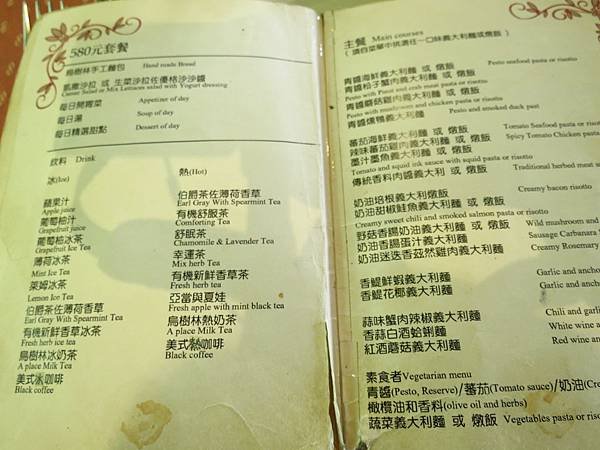 580元套餐
烏樹林手工麵包 Hand made Bread
凱撒沙拉 或 生菜沙拉佐優格沙沙醬
Caesar Salad or Mix Lettuces salad with Yogurt dressing
每日開胃菜 Appetizer of day
每日湯 Soup of day
每日精選甜點 Dessert of day
飲料 Drink
冰(Ice)
蘋果汁
Apple juice
葡萄柚汁
Grapefruit juice
葡萄柚冰茶
Grapefruit Ice Tea
薄荷冰茶
Mint Ice Tea
萊姆冰茶
Lemon Ice Tea
伯爵茶佐薄荷香草
Earl Gray With Spearmint Tea
有機新鮮香草冰茶
Fresh herb ice tea
烏樹林冰奶茶
A place Milk Tea
美式冰咖啡
Black coffee
熱(Hot)
伯爵茶佐薄荷香草
Earl Gray With Spearmint Tea
有機舒服茶
Comforting Tea
舒眠茶
Chamomile & Lavender Tea
幸運茶
Mix herb Tea
有機新鮮香草茶
Fresh herb tea
亞當與夏娃
Fresh apple with mint black tea
烏樹林熱奶茶
A place Milk Tea
美式熱咖啡
Black coffee
主餐 Main courses
(請自菜單中挑選任一口味義大利麵或燉飯)
青醬海鮮義大利麵 或 燉飯 Pesto seafood pasta or risotto
青醬松子蟹肉義大利麵 或 燉飯
Pesto with Pinenut and crab meat pasta or risotto
青醬蘑菇雞肉義大利麵 或 燉飯
Pesto with mushroom and chicken pasta or risotto
青醬燻鴨義大利麵 Pesto and smoked duck past
蕃茄海鮮義大利麵 或 燉飯 Tomato Seafood pasta or risotto
辣味蕃茄雞肉義大利麵 或 燉飯 Spicy Tomato Chicken pasta
墨汁墨魚義大利麵 或 燉飯
Tomato and squid ink sauce with squid pasta or risotto
傳統香料肉醬義大利麵 或 燉飯 Traditional herbed meat
奶油培根義大利燉飯 Creamy bacon risotto
奶油甜椒鮭魚義大利麵 或 燉飯
Creamy sweet chili and smoked salmon pasta or risotto
野菇香腸奶油義大利麵 或 燉飯 Wild mushroom and
奶油香腸蛋汁義大利麵 Sausage Carbanara
奶油迷迭香茲然雞肉義大利麵 Creamy Rosemary
香鯷鮮蝦義大利麵 Garlic and anchov
香鯷花椰義大利麵 Garlic and anchov
蒜味蟹肉辣椒義大利麵 Chili and garli
香蒜白酒蛤蜊麵 White wine a
紅酒蘑菇義大利麵 Red wine an
素食者Vegetarian menu
青醬(Pesto, Reserve)/蕃茄(Tomato sauce)/奶油(Cre
橄欖油和香料(olive oil and herbs)
蔬菜義大利麵 或 燉飯 Vegetables pasta or risot